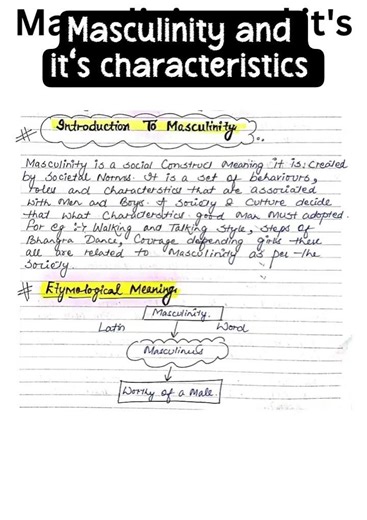 Masculinity and it's
Masculinity and
it's characteristics
# Introduction To Masculinity
Masculinity is a social Construct meaning it is created
by Societal Norms. It is a set of behaviours,
roles and characteristics that are associated
with Men and Boys. & society & Culture decide
that what Characteristics good man must adopted.
for eg :- Walking and Talking style, steps of
Bhangra Dance, Courage depending girls these
all are related to Masculinity as per the
Society.
# Etymological Meaning
Masculinity.
Latin Word
Masculinus
Worthy of a Male.